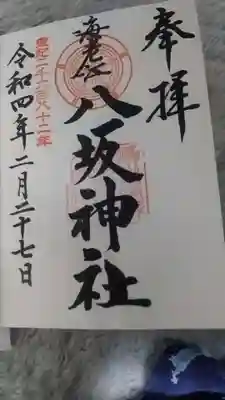 奉拝
海老江
八坂神社
皇紀二千六百八十二年
令和四年二月二十七日